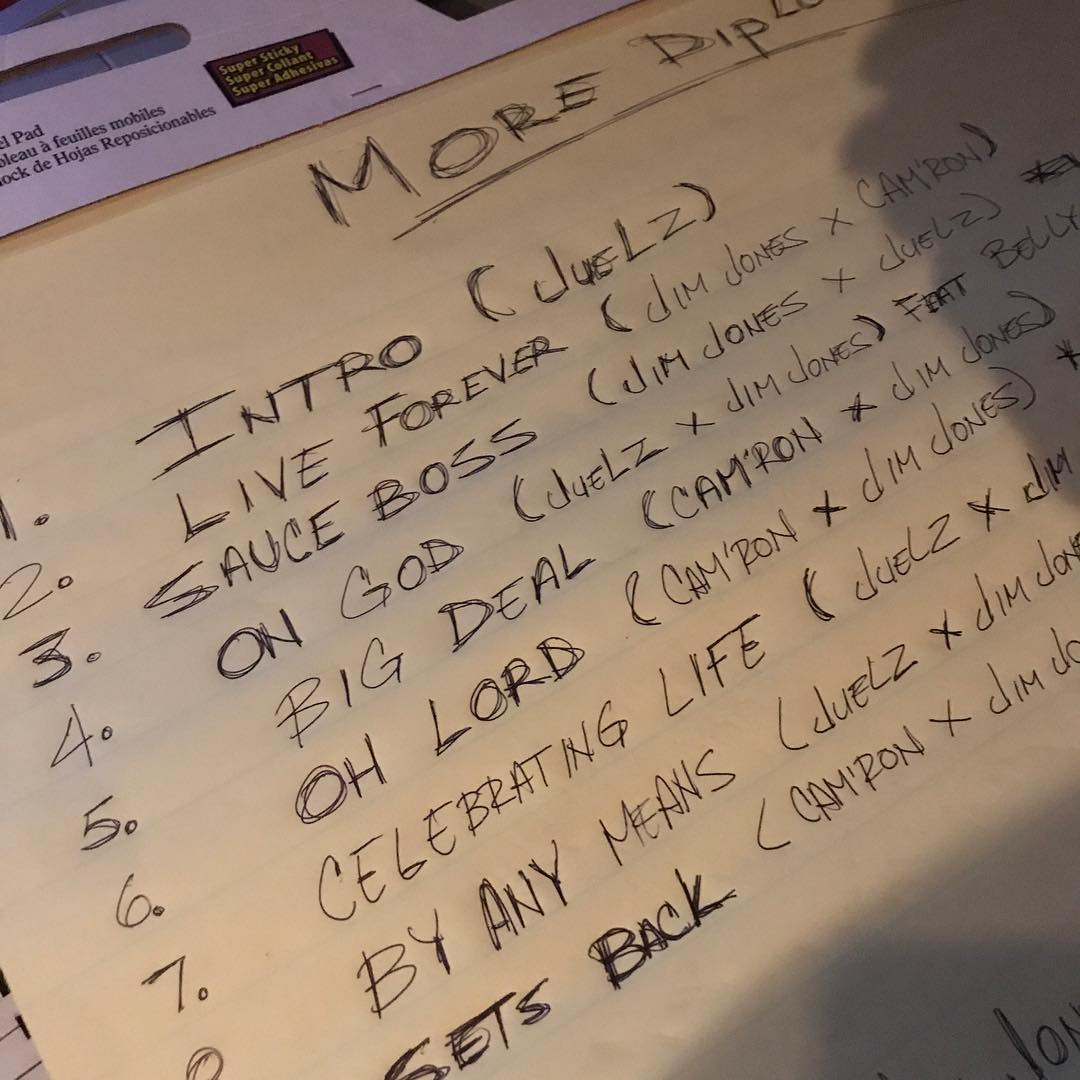 Super Sticky
Super Collant
Super Adhesivas
Pad
à feuilles mobiles
de Hojas Reposicionables
MORE DIPLO
1. INTRO (JUELZ)
2. LIVE FOREVER (JIM JONES X CAM'RON)
3. SAUCE BOSS (JIM JONES X JUELZ) *
4. ON GOD (JUELZ X JIM JONES) FEAT BELLY
5. BIG DEAL (CAM'RON X JIM JONES)
6. OH LORD (CAM'RON X JIM JONES) *
7. CELEBRATING LIFE (JUELZ X JIM
8. BY ANY MEANS (JUELZ X JIM JONE
SETS BACK (CAM'RON X JIM JO
JON